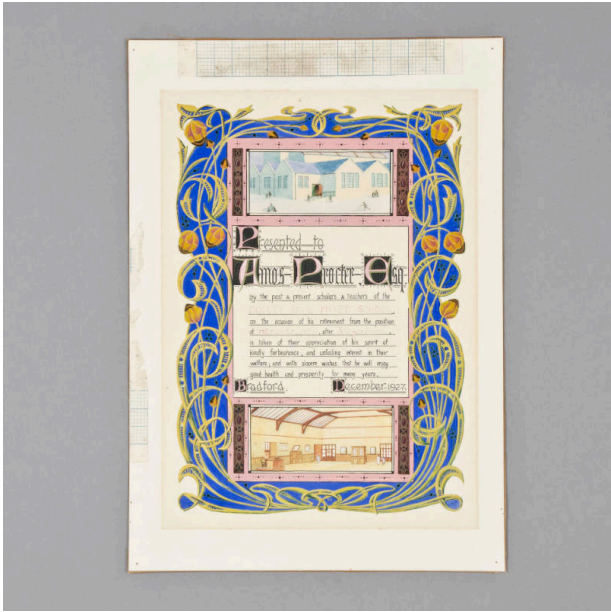 Presented to
Amos Procter, Esq.
by the past & present scholars & teachers of the
on the occasion of his retirement from the position
of after
in token of their appreciation of his spirit of
kindly forbearance, and unfailing interest in their
welfare; and with sincere wishes that he will enjoy
good health and prosperity for many years.
Bradford. December.1927.